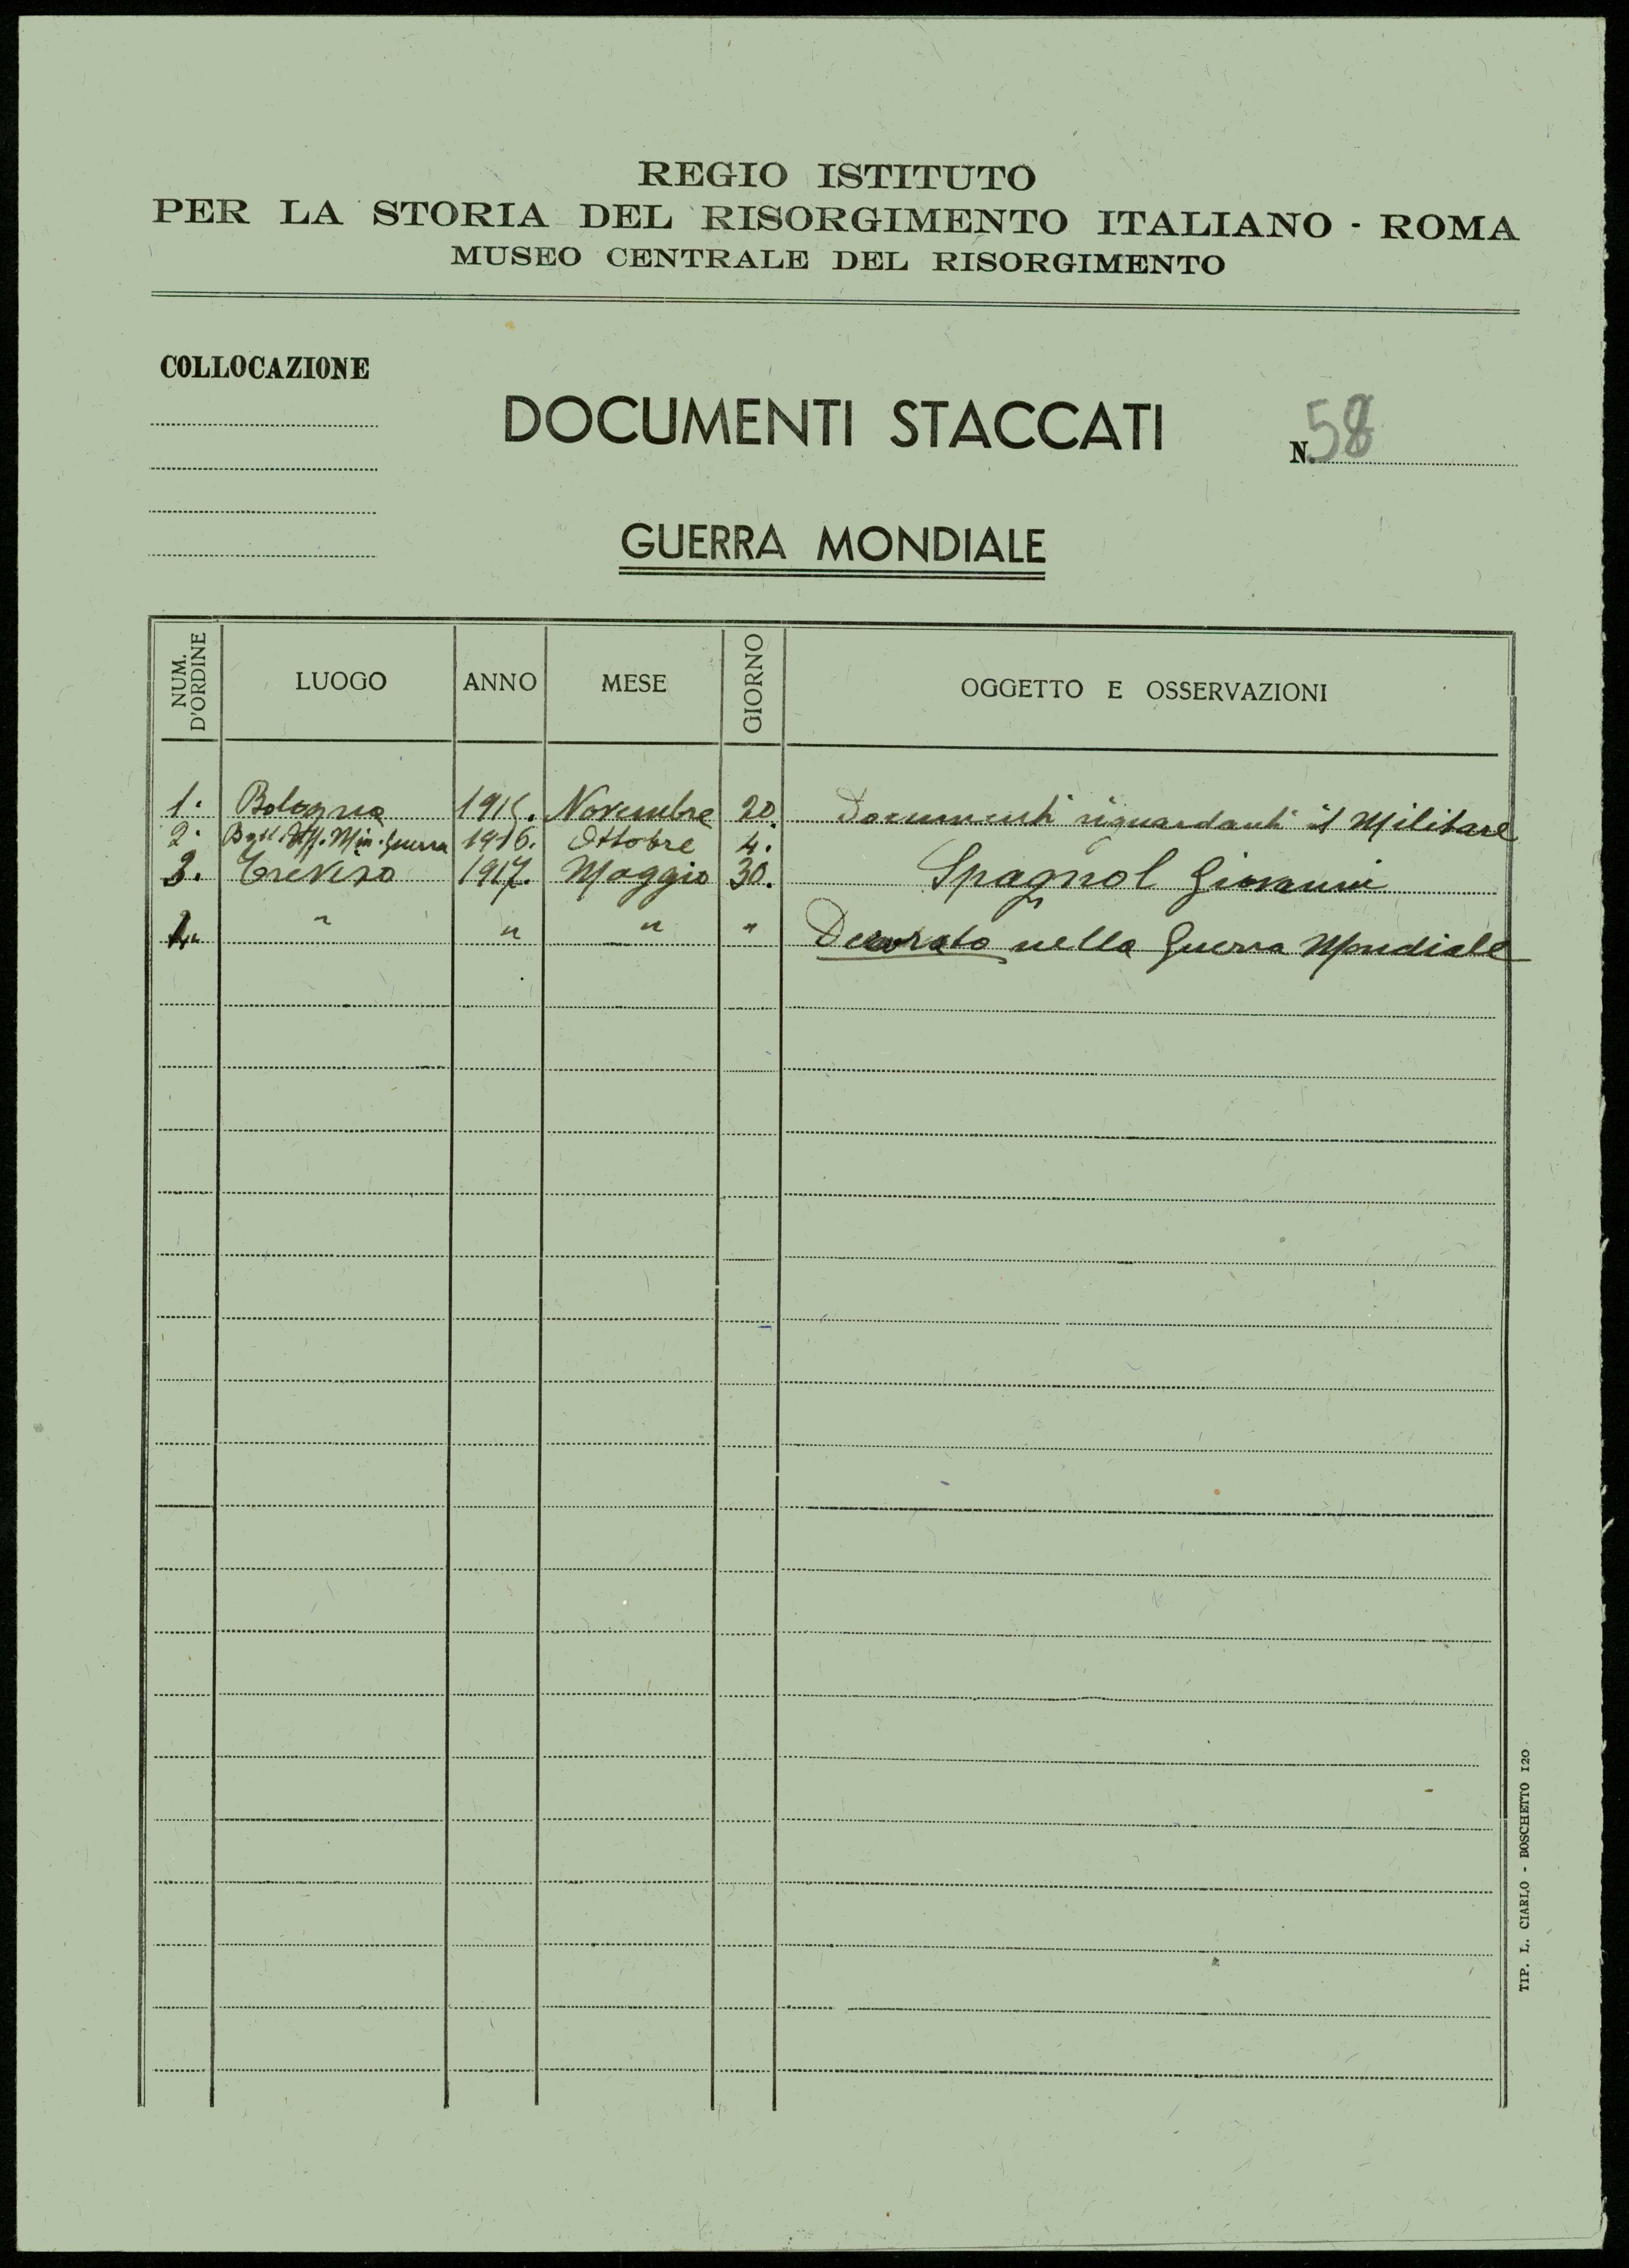 REGIO ISTITUTO
PER LA STORIA DEL RISORGIMENTO ITALIANO - ROMA
MUSEO CENTRALE DEL RISORGIMENTO
COLLOCAZIONE
DOCUMENTI STACCATI
N. 58
GUERRA MONDIALE
NUM. D'ORDINE LUOGO ANNO MESE GIORNO OGGETTO E OSSERVAZIONI
1. Bologna 1915. Novembre 20. Documenti riguardanti il Militare
2. Uff. Min. Guerra 1916. Ottobre 4.
3. Treviso 1917. Maggio 30. Spagnol Giovanni
4. " " " " Decorato nella Guerra Mondiale
TIP. L. CIARLO - BOSCHETTO 120